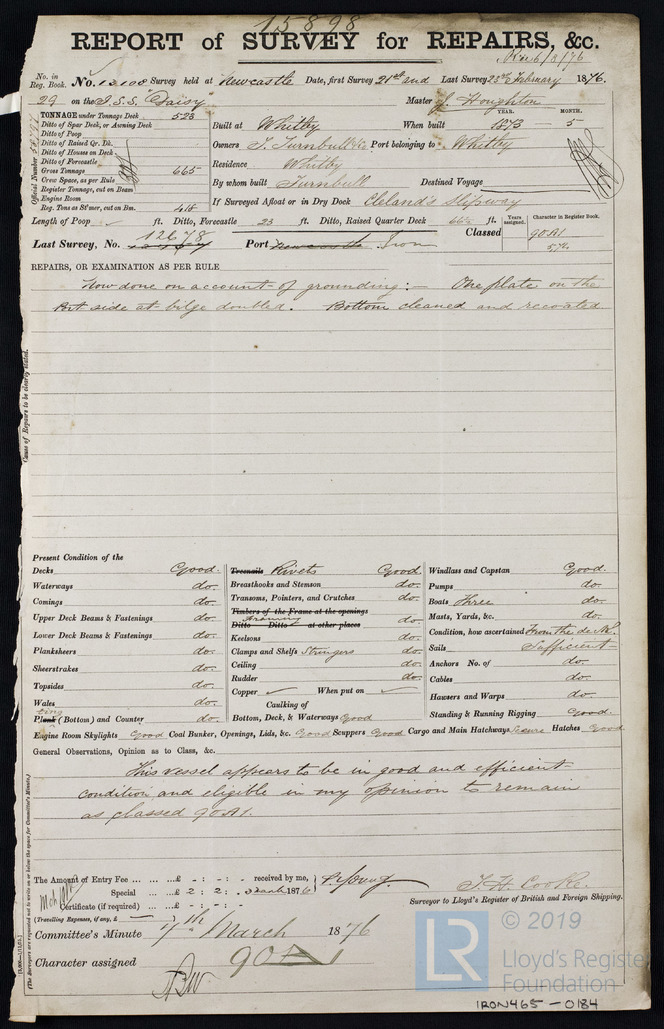 15898
REPORT of SURVEY for REPAIRS, &c.
6/3/76
No. in Reg. Book. No. 13108 Survey held at Newcastle Date, first Survey 21st and Last Survey 23rd February 1876.
29 on the I.S.S. "Daisy" Master J. Houghton
TONNAGE under Tonnage Deck 523
Ditto of Spar Deck, or Awning Deck
Ditto of Poop
Ditto of Raised Qr. Dk.
Ditto of Houses on Deck
Ditto of Forecastle
Gross Tonnage 665
Crew Space, as per Rule
Register Tonnage, cut on Beam
Engine Room
Reg. Tons as St'mer, cut on Bm. 418
Official Number
YEAR. MONTH.
Built at Whitby When built 1873 — 5
Owners T. Turnbull & Co Port belonging to Whitby
Residence Whitby
By whom built Turnbull Destined Voyage
If Surveyed Afloat or in Dry Dock Cleland's Slipway
Length of Poop ft. Ditto, Forecastle 23 ft. Ditto, Raised Quarter Deck ft.
Years assigned. Character in Register Book.
Classed 90A1
12678
Last Survey, No. Port Newcastle Iron
5,76
REPAIRS, OR EXAMINATION AS PER RULE
Now done on account of grounding:— One plate on the
Port side at bilge doubled. Bottom cleaned and recoated
Cause of Repairs to be clearly stated.
Present Condition of the
Decks Good.
Waterways do.
Comings do.
Upper Deck Beams & Fastenings do.
Lower Deck Beams & Fastenings do.
Planksheers do.
Sheerstrakes do.
Topsides do.
Wales do.
ting
Plank (Bottom) and Counter do.
Treenails Rivets Good
Breasthooks and Stemson do.
Transoms, Pointers, and Crutches do.
Timbers of the Frame at the openings
Framing
Ditto Ditto at other places do.
Keelsons do.
Clamps and Shelfs Stringers do.
Ceiling do.
Rudder do.
Copper ✓ When put on ✓
Caulking of
Bottom, Deck, & Waterways Good
Windlass and Capstan Good.
Pumps do.
Boats Three do.
Masts, Yards, &c. do.
Condition, how ascertained From the deck.
Sails Sufficient
Anchors No. of do.
Cables do.
Hawsers and Warps do.
Standing & Running Rigging Good.
Engine Room Skylights Good Coal Bunker, Openings, Lids, &c. Good Scuppers Good Cargo and Main Hatchways Secure Hatches Good
General Observations, Opinion as to Class, &c.
This vessel appears to be in good and efficient
condition and eligible in my opinion to remain
as classed 90A1.
The Amount of Entry Fee ... ... ...£ - : - : - received by me,
Special ... ...£ 2 : 2 : March 1876
Certificate (if required) ... ...£ - : - : -
(Travelling Expenses, if any, £ — )
T. H. Cooke.
Surveyor to Lloyd's Register of British and Foreign Shipping.
Committee's Minute 7th March 1876
Character assigned 90A1
(The Surveyors are requested not to write on or below the space for Committee's Minute.)
© 2019
LR
Lloyd's Register
Foundation
IRON465-0184